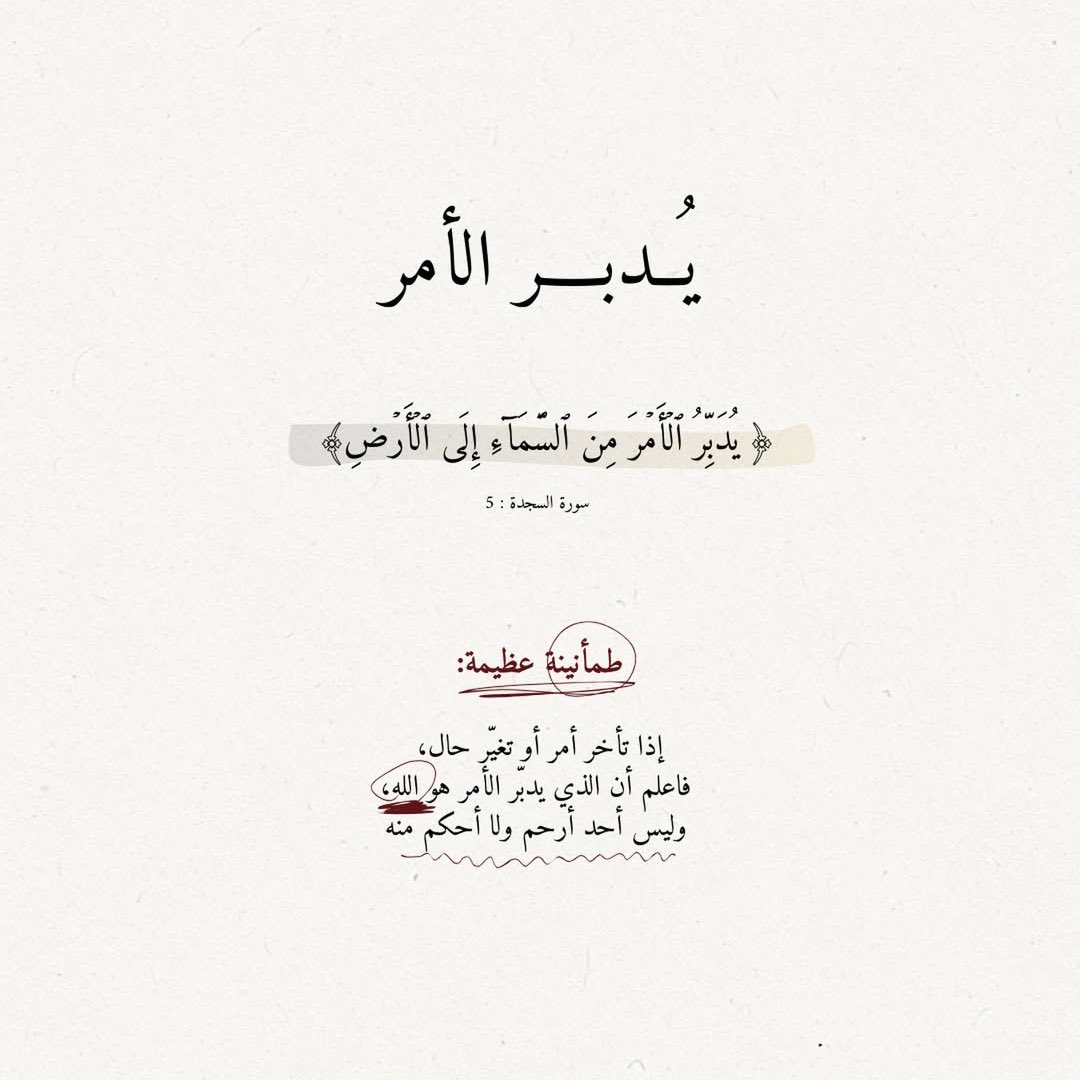 يُـدبـــر الأمر
﴿ يُدَبِّرُ ٱلْأَمْرَ مِنَ ٱلسَّمَآءِ إِلَى ٱلْأَرْضِ﴾
سورة السجدة : 5
طمأنينة عظيمة:
إذا تأخر أمر أو تغيّر حال،
فاعلم أن الذي يدبّر الأمر هو الله،
وليس أحد أرحم ولا أحكم منه